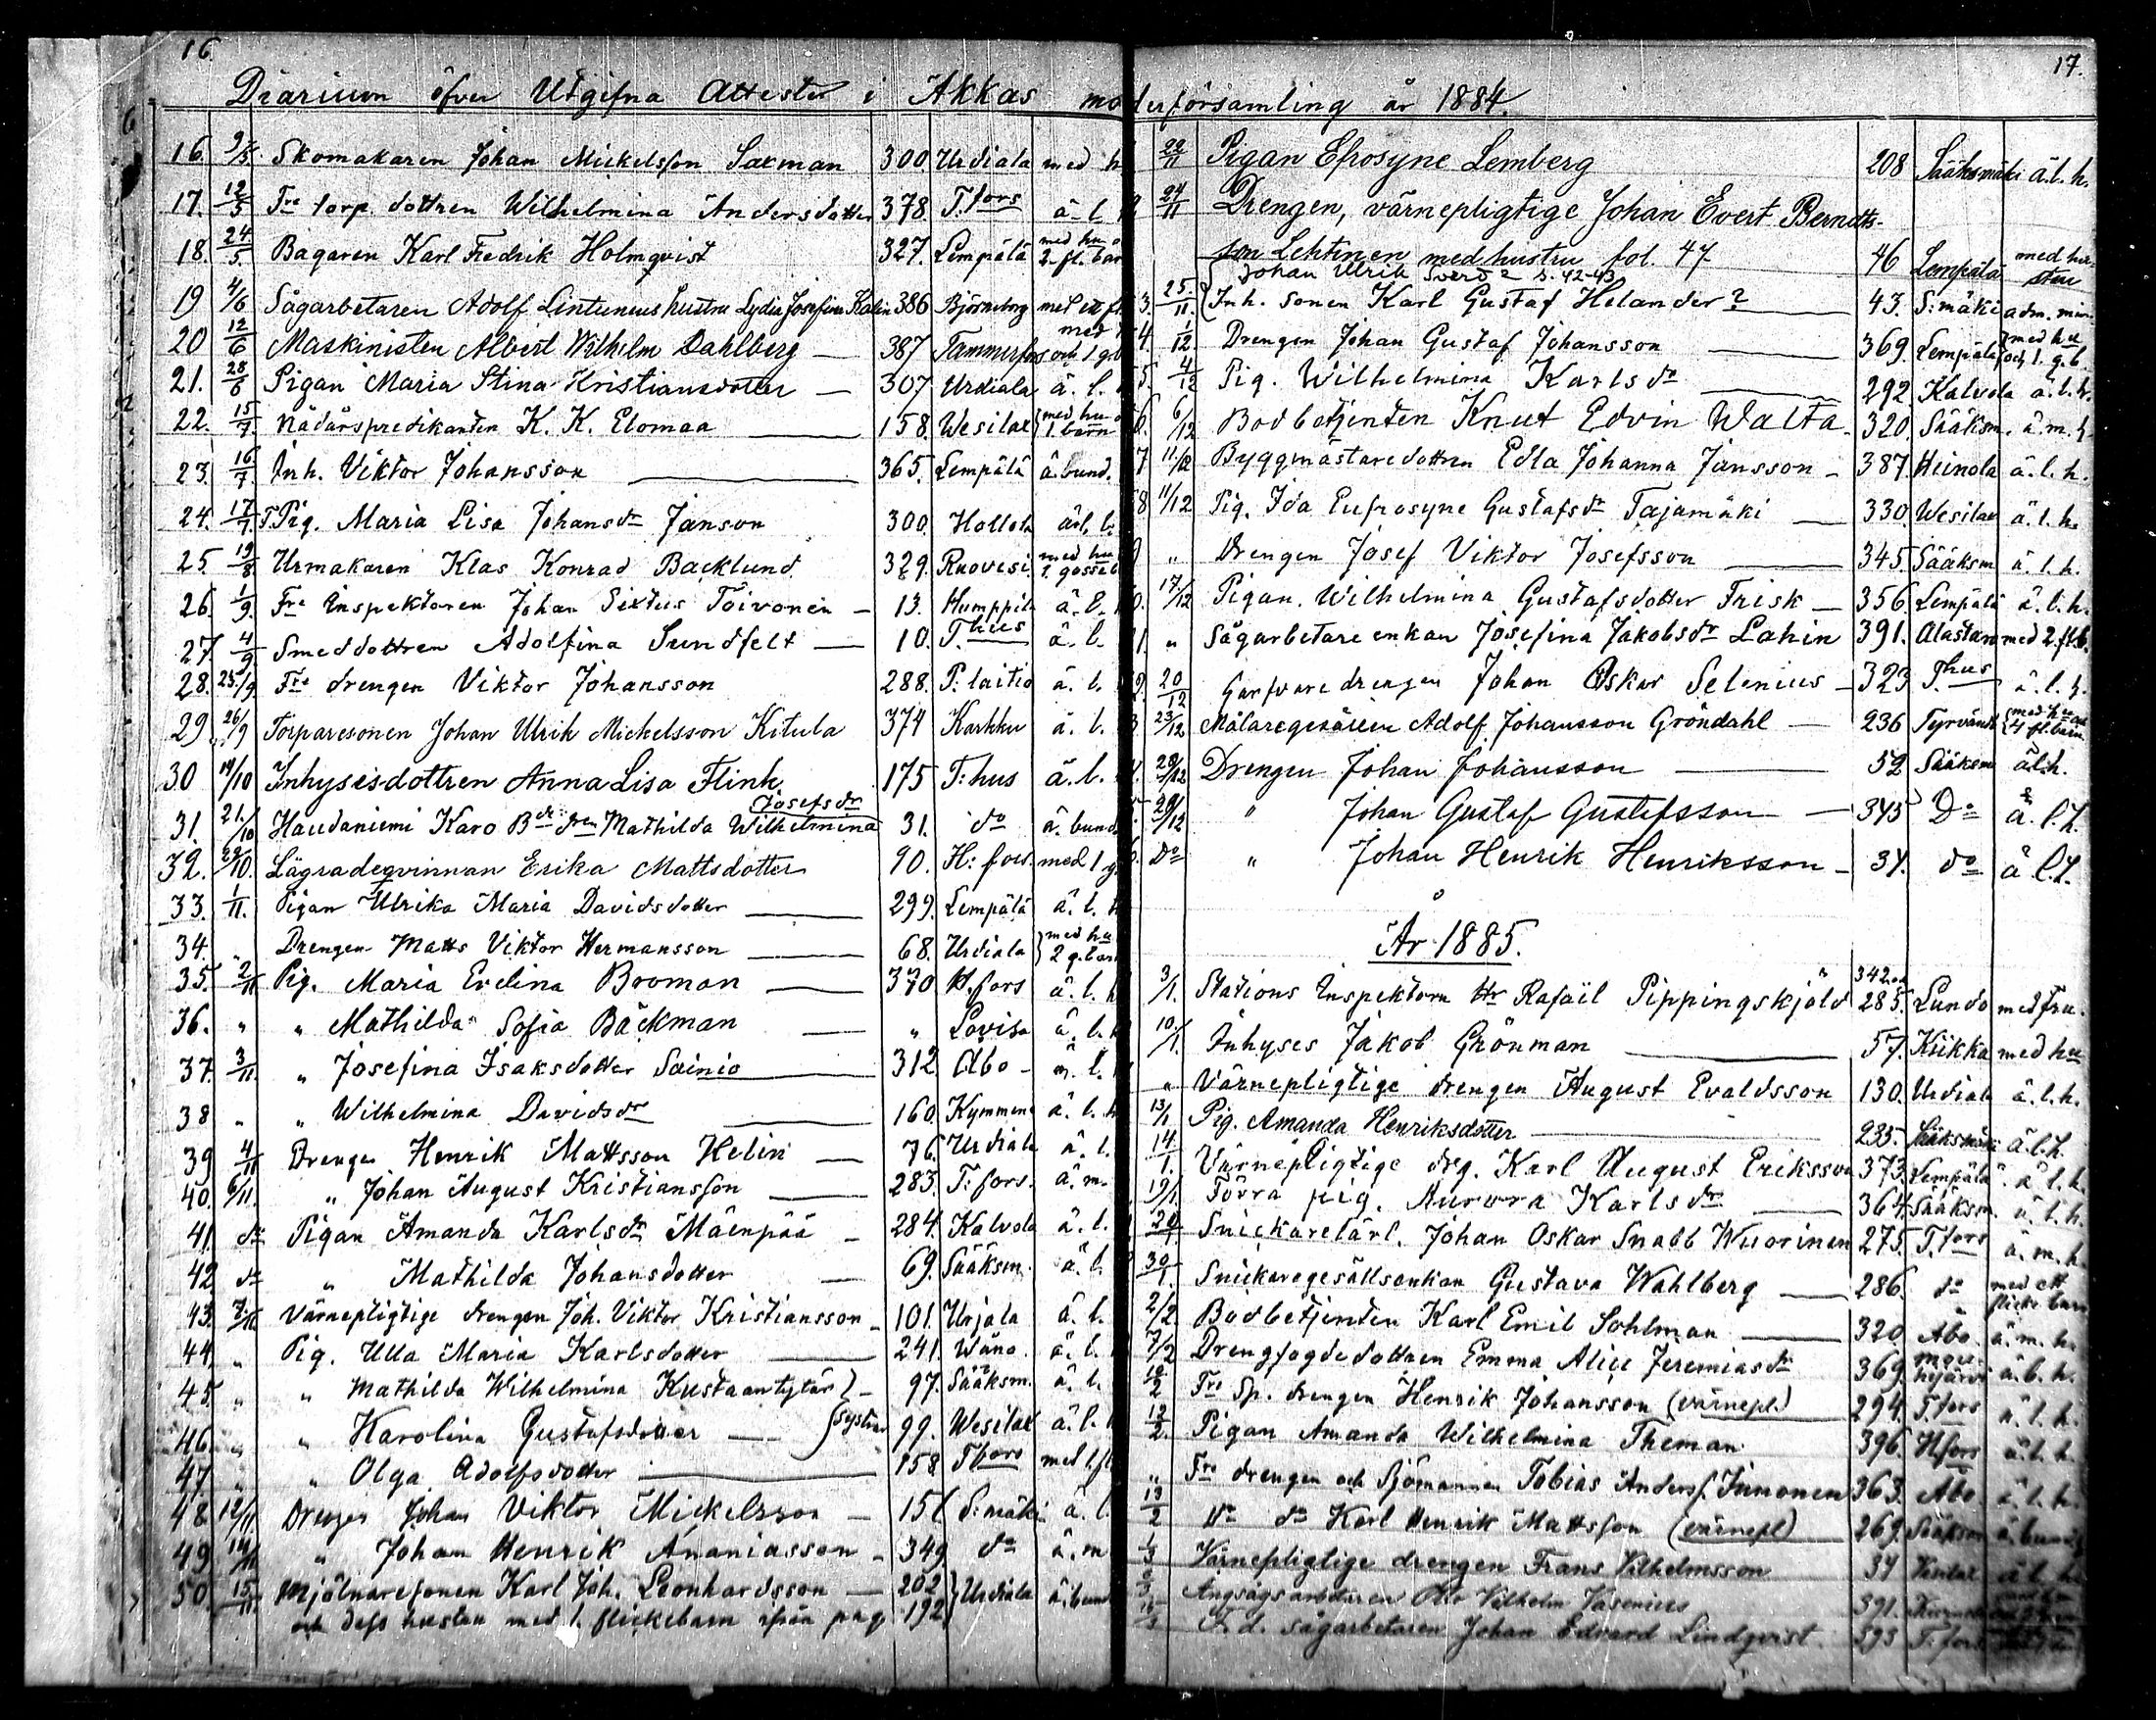 16.
Diarium öfver Utgifna Attester i Akkas mo
16. 9/5. Skomakaren Johan Mickelsson Saxman 300. Urdiala med h
17. 12/5 Fre torp. dottren Wilhelmina Andersdotter 378. T.fors ä. l.
18. 24./5. Bagaren Karl Fredrik Holmqvist 327. Lempälä med hu o 2. fl. bar
19 4/6 Sågarbetaren Adolf Lintunens hustru Lydia Josefina Kalin 386 Björneborg med ett fl.
20 12/6 Maskinisten Albert Wilhelm Dahlberg — 387 Tammerfors med och 1 g.b
21. 28/6 Pigan Maria Stina Kristiansdotter — 307 Urdiala ä. l.
22. 15/7. Nådårspredikanten K. K. Elomaa — 158. Wesilax med hu o 1. barn
23. 16/7. Inh. Viktor Johansson — 365. Lempälä ä. bund.
24. 17/7 Pig. Maria Lisa Johansdr Janson 300. Hollola ä. l.
25. 19/8. Urmakaren Klas Konrad Backlund. 329. Ruovesi. med hu 1. gosseb
26. 1/9. Fre Inspektoren Johan Sixtus Toivonen — 13. Humppila ä. l.
27. 4/9 Smeddottren Adolfina Sundfelt — 10. T.hus ä. l.
28. 25./9 Fre drengen Viktor Johansson 288. P: laitio ä. l.
29 26/9 Torparesonen Johan Ulrik Mickelsson Kitula 374 Karkku ä. l.
30 14/10 Inhysesdottren Anna Lisa Flink 175 T: hus ä. l.
Josefsdr
31. 21./10 Haudaniemi Karo Bdr dren Mathilda Wilhelmina 31. do ä. bund
32. 29/10. Lägradeqvinnan Erika Mattsdotter 90. H: fors. med 1 g.
33. 1/11. Pigan Ulrika Maria Davidsdotter — 299. Lempälä ä. l. h
34. " Drengen Matts Viktor Hermansson — 68. Urdiala med hu 2 g. bar
35. 2/11 Pig. Maria Evelina Broman — 370 H. fors ä. l. h
36. " " Mathilda Sofia Bäckman — " Lovisa ä. l.
37. 3/11. " Josefina Isaksdotter Sainio — 312 Åbo - ä. l.
38 " " Wilhelmina Davidsdr — 160. Kymmene ä. l. h
39 4/11 Drengen Henrik Mattsson Helin — 76. Urdiala ä. l.
40. 6/11. " Johan August Kristiansson — 283. T: fors. ä. m.
41. do Pigan Amanda Karlsdr Mäenpää — 284. Kalvola ä. l.
42. do " Mathilda Johansdotter — 69. Sääksm. ä. l.
43. 7/11. Värnepligtige drengen Joh. Viktor Kristiansson — 101. Urjala ä. l.
44. " Pig. Ulla Maria Karlsdotter — 241. Wånå. ä. l.
45. " " Mathilda Wilhelmina Kustaantytär — 97. Sääksm. ä. l.
46. " " Karolina Gustafsdotter — systrar 99. Wesilax ä. l.
47. " " Olga Adolfsdotter — 158 T.fors med 1 fl
48. 12/11. Drengen Johan Viktor Mickelsson — 151 S: mäki ä. l.
49 14/11 " Johan Henrik Ananiasson — 349 do ä. m
50. 15/11. Mjölnaresonen Karl Joh. Leonhardsson — 202 Urdiala ä. bund
och dess hustru med 1. flickebarn ifrån pag 192
17.
derförsamling år 1884.
22/11 Pigan Efrosyne Lemberg 208 Sääksmäki ä. l. h.
24/11 Drengen, värnepligtige Johan Evert Berndts-
son Lehtinen med hustru fol. 47 46 Lempälä med hustru
Johan Ulrik Sverd? s. 42-43
3. 25./11. Inh. sonen Karl Gustaf Helander? — 43. S: mäki adm. min
4. 1/12. Drengen Johan Gustaf Johansson — 369. Lempälä med hu och 1. g. b.
5. 4/12 Pig. Wilhelmina Karlsdr — 292. Kalvola ä. l. h.
6. 6/12 Bodbetjenten Knut Edvin Walta. 320. Sääksm. ä. m. h.
7 11/12 Byggmästaredottren Edla Johanna Jansson — 387. Heinola ä. l. h.
8 11/12 Pig. Ida Eufrosyne Gustafsdr Tajamäki — 330. Wesilax ä. l. h.
9 " Drengen Josef Viktor Josefsson — 345. Sääksm ä. l. h.
0. 17/12 Pigan. Wilhelmina Gustafsdotter Frisk — 356. Lempälä ä. l. h.
1. " Sågarbetareenkan Josefina Jakobsdr Lahin 391. Alastaro med 2. fl. b.
2. 20/12 Garfvaredrengen Johan Oskar Selenius — 323 T.hus ä. l. h.
3 23/12 Målaregesällen Adolf Johansson Gröndahl — 236 Tyrväntö med hu och 4 fl. barn
4. 29/12 Drengen Johan Johansson — 52 Sääksm ä. l. h.
5. 29/12 " Johan Gustaf Gustafsson — 345 Do ä. l. h.
6. Do " Johan Henrik Henriksson — 34. do ä. l. h.
År 1885.
3/1. Stations Inspektorn Hr Rafaël Pippingskjöld 342 och 285. Lundo med fru.
10./1. Inhyses Jakob Grönman — 57. Kiikka med hu
" Värnepligtige drengen August Evaldsson 130. Urdiala ä. l. h.
13/1 Pig. Amanda Henriksdotter — 235. Sääksmäki ä. l. h.
14./1. Värnepligtige drg. Karl August Eriksson 373. Lempälä ä. l. h.
19/1. Förra pig. Aurora Karlsdr — 364. Sääksm. ä. l. h.
20/1 Snickarelärl. Johan Oskar Snabb Wuorinen 275. T.fors ä. m. h
30/1. Snickaregesällsenkan Gustava Wahlberg — 286. do med ett flicke barn
2/2. Bodbetjenten Karl Emil Sohlman — 320 Åbo. ä. m. h.
7/2 Drengfogdedottren Emma Alice Jeremiasdr 369. ä. b. h.
10/2 Fre Sp. drengen Henrik Johansson (värnepl.) 294. T.fors ä. l. h.
12/2. Pigan Amanda Wilhelmina Theman 396. H.fors ä. l. h.
" Fre drengen och Sjömannen Tobias Anderss. Immonen 363. Åbo ä. l. h.
13/2 do do Karl Henrik Mattsson (värnepl) 269. Sääksm ä. bund.
4/3 Värnepligtige drengen Frans Vilhelmsson 34 Vesilax ä. l. h.
Ångsågsarbetaren Otto Vilhelm Vasenius 391.
F. d. sågarbetaren Johan Edvard Lindqvist 393 T. fors